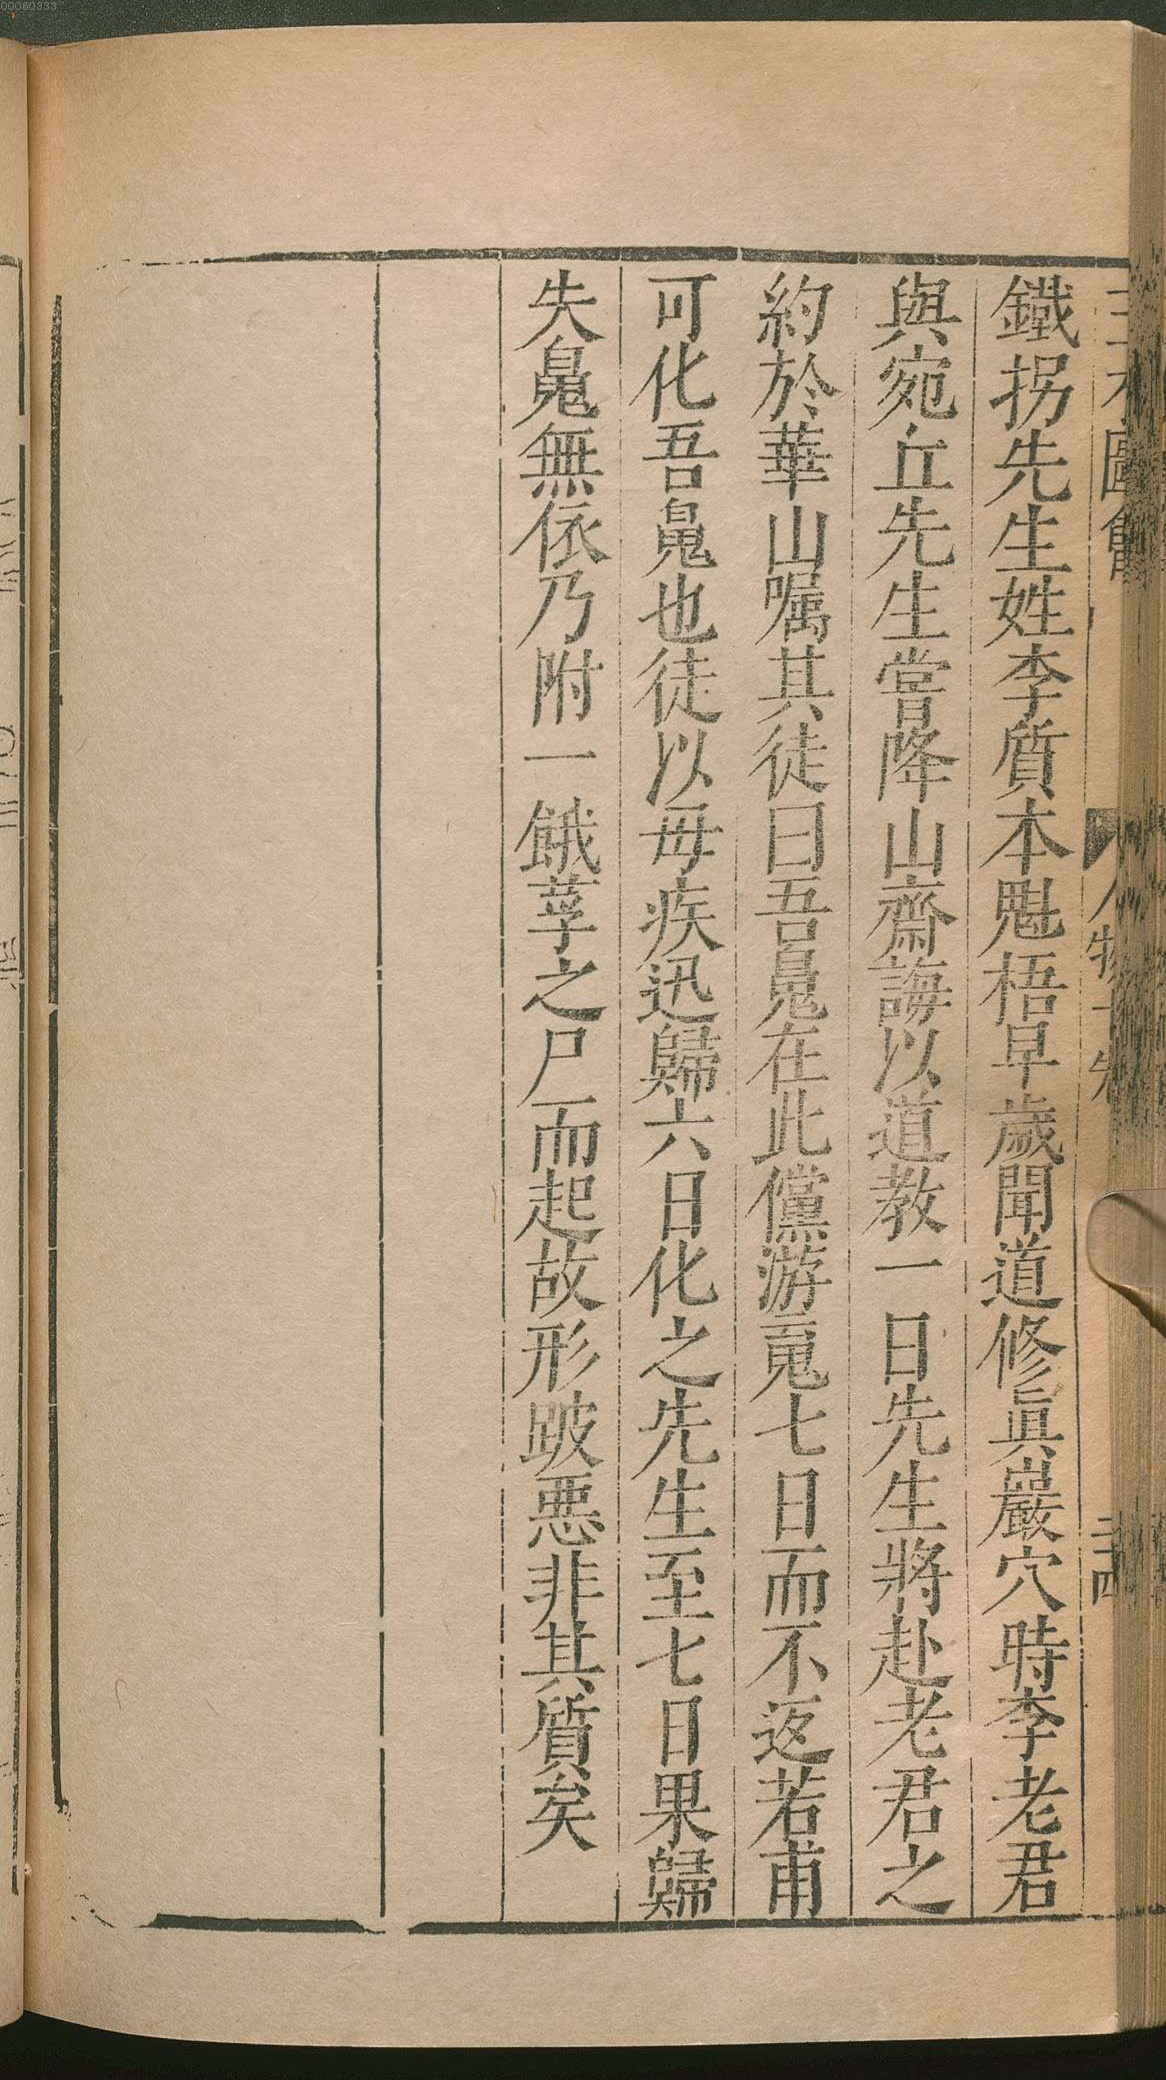 00060333
三才圖會
人物十
二十四
鐵拐先生姓李質本魁梧早歲聞道修眞巖穴時李老君
與宛丘先生嘗降山齋誨以道教一日先生將赴老君之
約於華山嘱其徒曰吾䰟在此儻游䰟七日而不返若甫
可化吾䰟也徒以母疾迅歸六日化之先生至七日果歸
失䰟無依乃附一餓莩之尸而起故形跛悪非其質矣